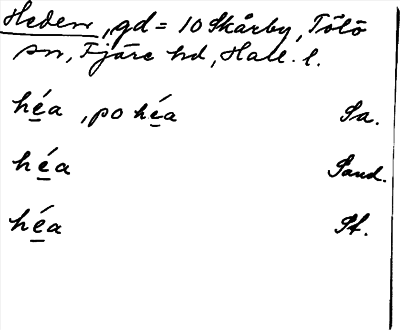 Heden, gd = 10 Skårby, Tölö
sn, Fjäre hd, Hall. l.
hé̱a, po hé̱a Sa.
hé̱a Sand.
hé̱a St.